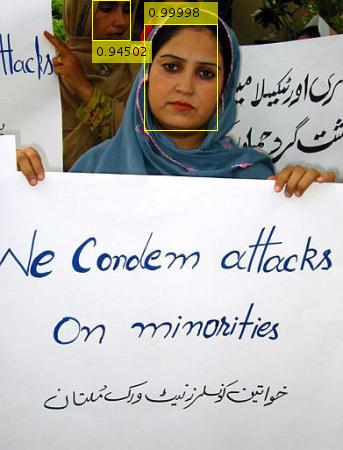 0.99998
0.94502
ttacks
ری اور ٹیکسیلا میں
شت گرد حملوں
We Condem attacks
On minorities
خواتین کونسلرز نیٹ ورک ملتان